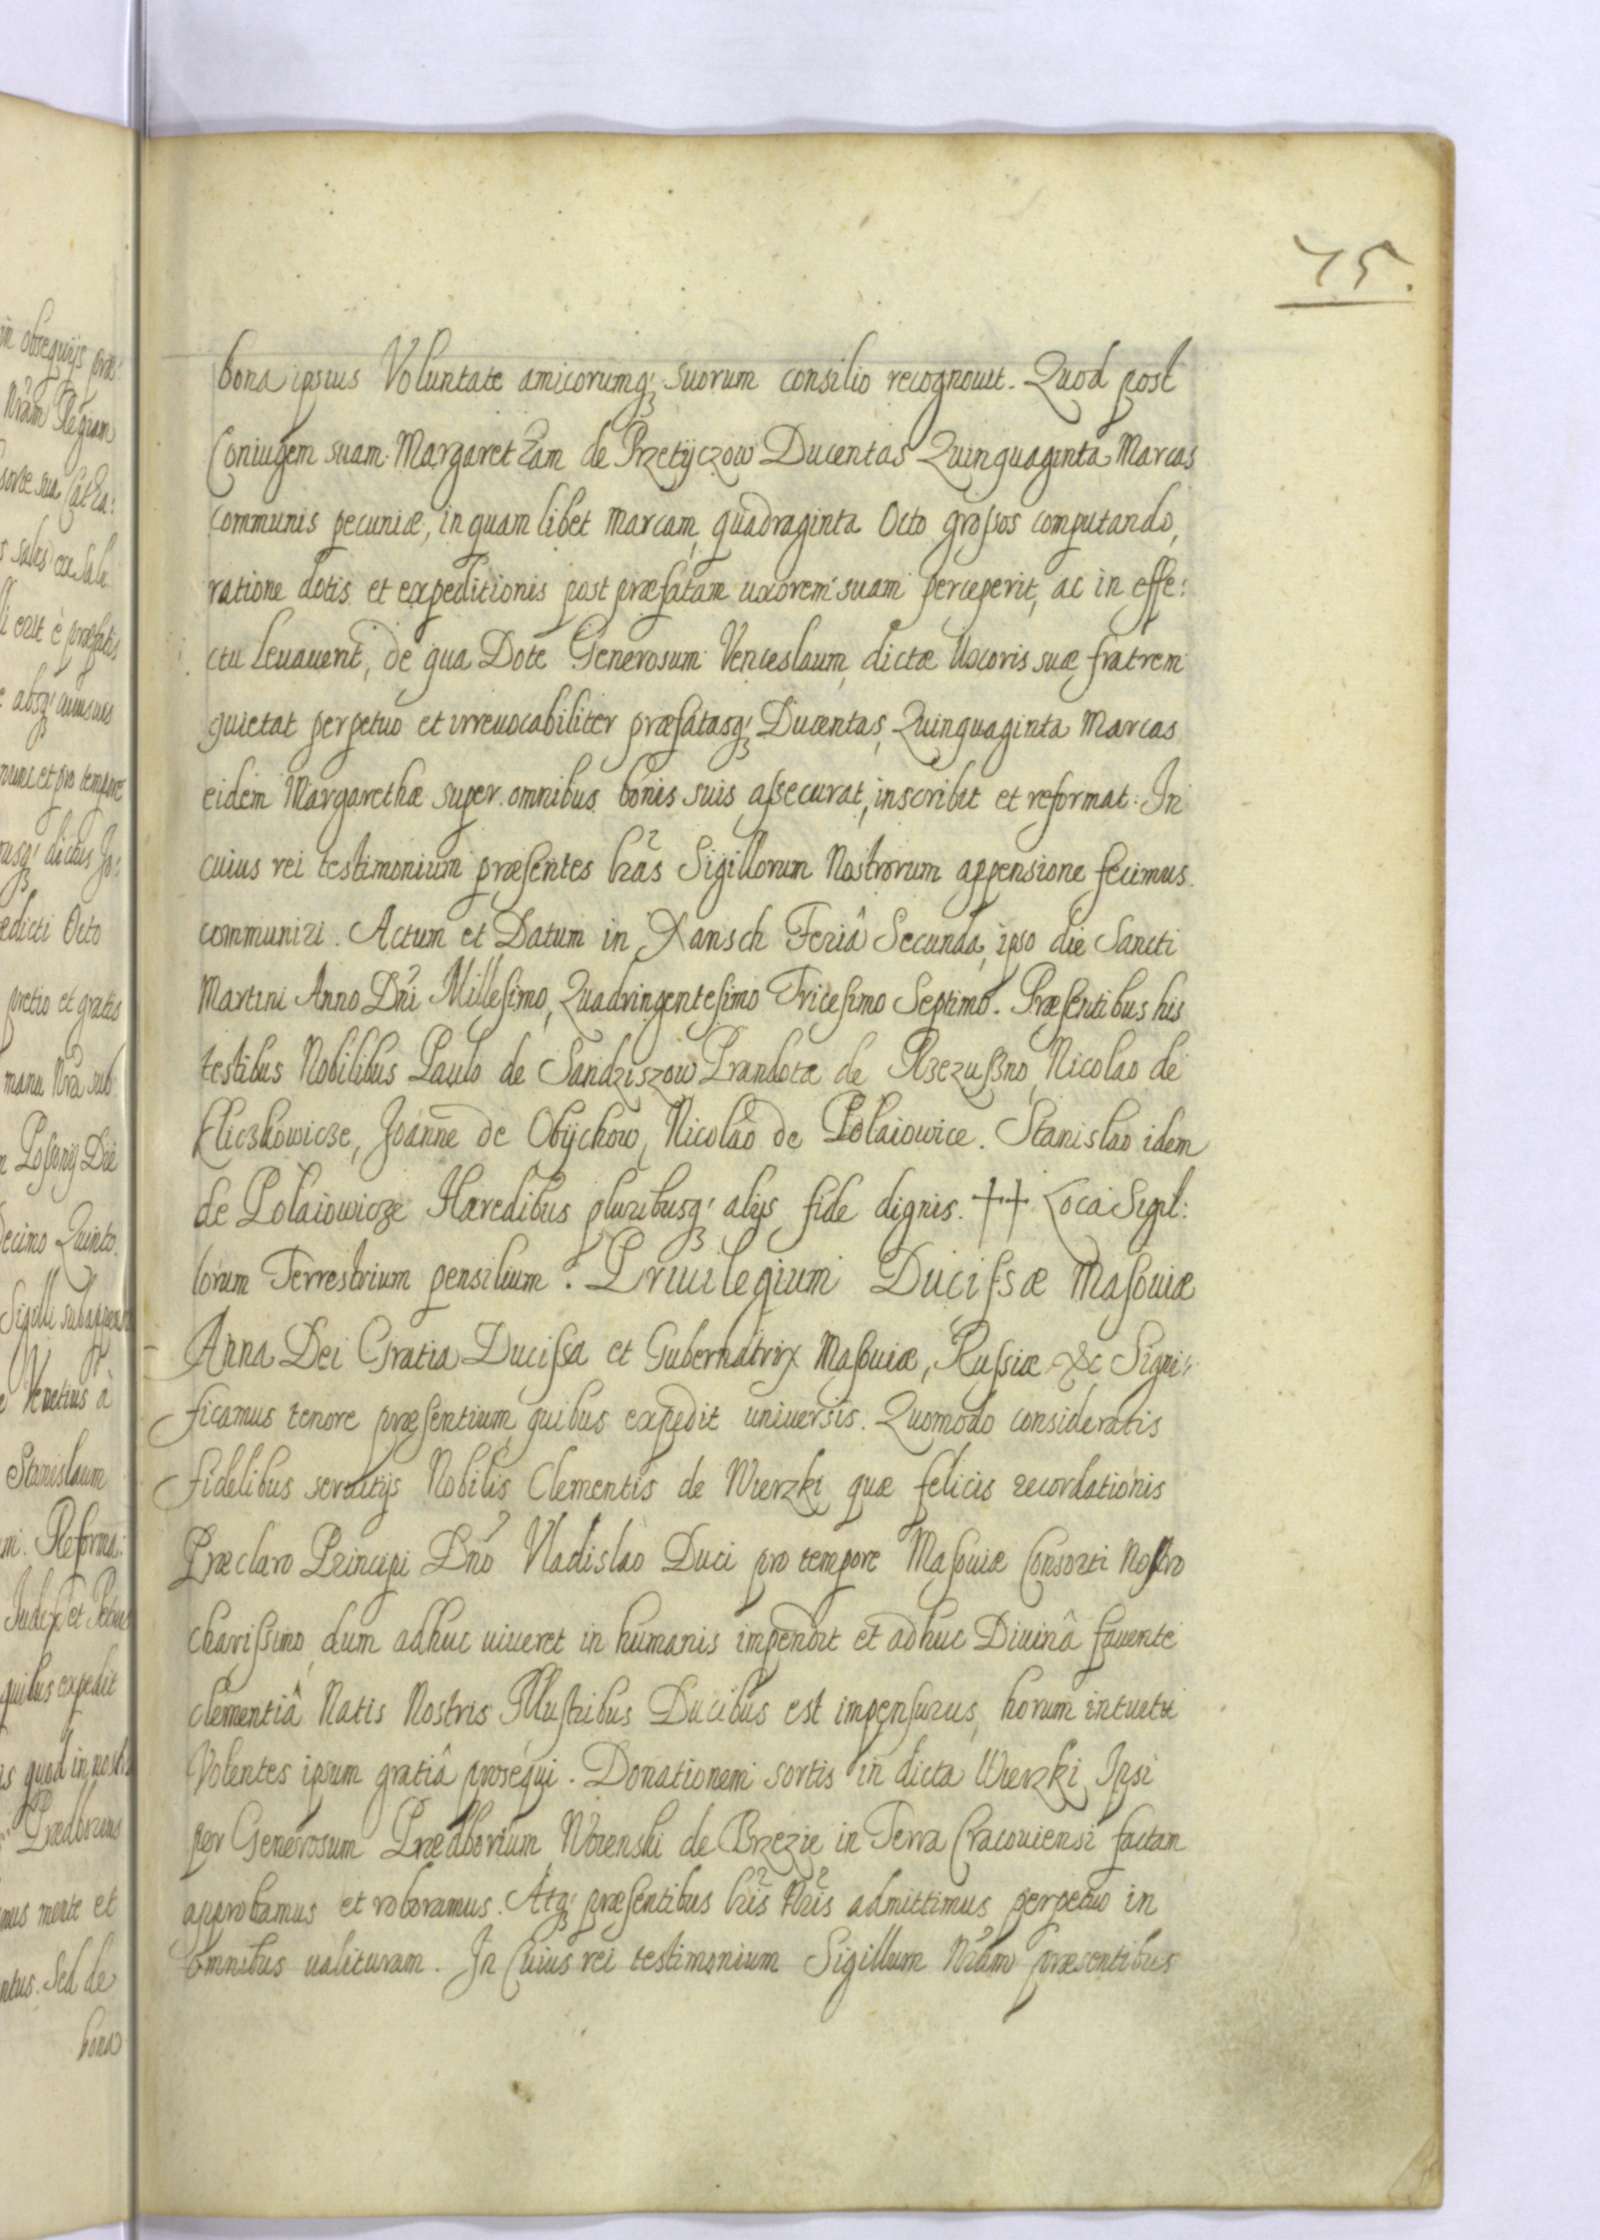 75.
bona ipsius Voluntate amicorumq; suorum consilio recognouit. Quod post
Coniugem suam Margaretham de Przetyczow Ducentas Quinquaginta Marcas
communis pecuniæ, in quam libet marcam, quadraginta Octo grossos computando,
ratione dotis et expeditionis post præfatam uxorem suam perceperit, ac in effe:
ctu leuauerit, de qua Dote Generosum Venceslaum, dictæ Uxoris suæ fratrem
quietat perpetuo et irreuocabiliter præfatasq; Ducentas, Quinquaginta Marcas
eidem Margarethæ super omnibus bonis suis assecurat, inscribit et reformat. In
cuius rei testimonium præsentes lrãs Sigillorum Nostrorum appensione fecimus
communiri. Actum et Datum in Xansch Feriâ Secunda, ipso die Sancti
Martini Anno Dñi Millesimo, Quadringentesimo Tricesimo Septimo. Præsentibus his
testibus Nobilibus Paulo de Sandziszow Prandotæ de Rzezussno, Nicolao de
Kliczkowicze, Joanne de Obÿchow, Nicolao de Polaiowice. Stanislao idem
de Polaiowicze Hæredibus pluribusq; alijs fide dignis. ++ Loca Sigil:
lorum Terrestrium pensilium. Priuilegium Ducissæ Masouiæ
Anna Dei Gratia Ducissa et Gubernatrix Masouiæ, Russiæ &c Signi:
ficamus tenore præsentium, quibus expedit uniuersis. Quomodo consideratis
fidelibus seruitijs Nobilis Clementis de Wierzki quæ felicis recordationis
Præclaro Principi Dño Vladislao Duci pro tempore Masouiæ Consorti Nostro
charissimo, dum adhuc uiueret in humanis impendit et adhuc Diuinâ fauente
clementiâ Natis Nostris Illustribus Ducibus est impensurus, horum intuitu
Volentes ipsum gratiâ prosequi. Donationem sortis in dicta Wierzki Ipsi
per Generosum Prædborium de Brzezie in Terra Cracouiensi factam
approbamus et roboramus. Atq; præsentibus lrĩs Nrĩs admittimus perpetuo in
omnibus ualituram. In Cuius rei testimonium Sigillum Nrũm præsentibus